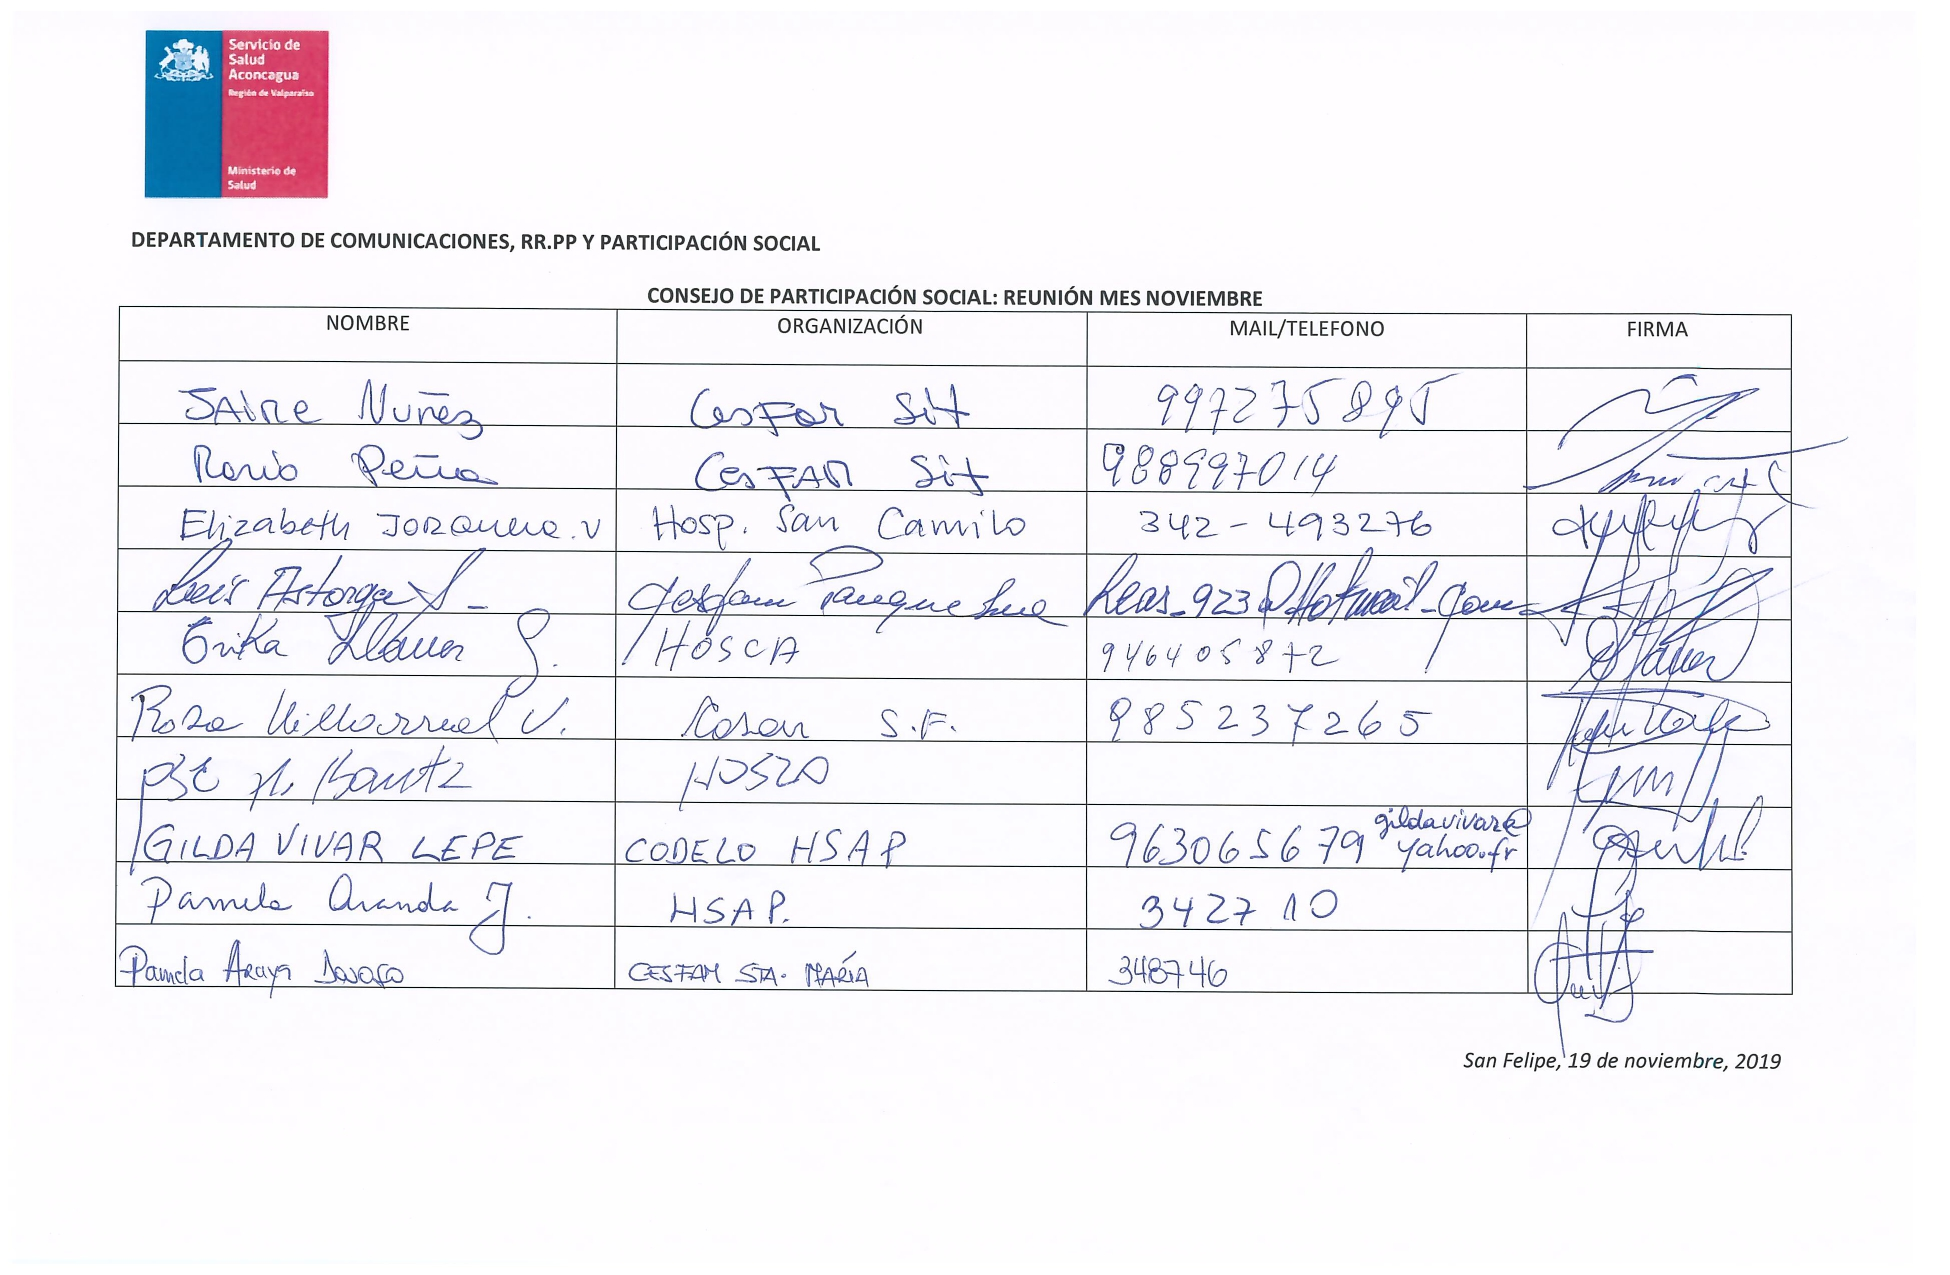 Servicio de
Salud
Aconcagua
Región de Valparaíso
Ministerio de
Salud
DEPARTAMENTO DE COMUNICACIONES, RR.PP Y PARTICIPACIÓN SOCIAL
CONSEJO DE PARTICIPACIÓN SOCIAL: REUNIÓN MES NOVIEMBRE
NOMBRE ORGANIZACIÓN MAIL/TELEFONO FIRMA
JAIME Nuñez Cesfam 997275895
Peña CesFAM 988997014
Elizabeth Jorquera. V Hosp. San Camilo 342-493276
Luis Astorga Cesfam Panquehue
Erika S. HOSCA 946405872
Rosa Villarreal V. Cosam S.F. 985237265
GILDA VIVAR LEPE CODELO HSAP 963065679 gildavivar@
yahoo.fr
Pamela Aranda J. HSAP. 342710
Pamela Araya CESFAM STA. MARÍA 348746
San Felipe, 19 de noviembre, 2019